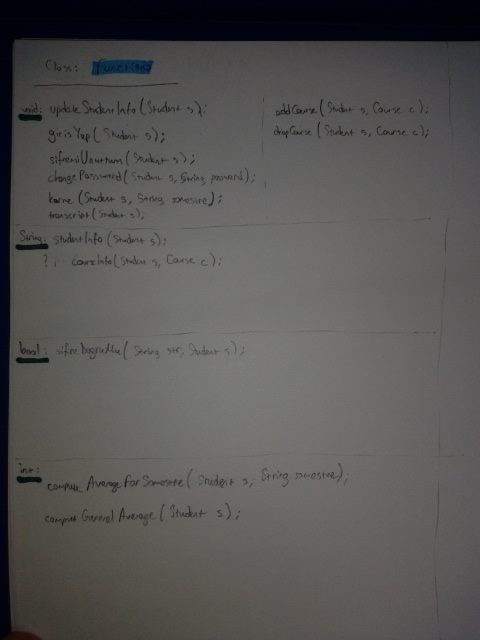 Class: functions
void: updateStudentInfo (Student s);
girisYap (Student s);
sifremiUnuttum (Student s);
changePassword (Student s, String password);
karne (Student s, String somestre);
transcript (Student s);
addCourse (Student s, Course c);
dropCourse (Student s, Course c);
String: studentInfo (Student s);
? ; courseInfo (Student s, Course c);
bool: sifreDogruMu (String str, Student s);
int:
compute Average For Somestre (Student s, String somestre);
compute General Average (Student s);